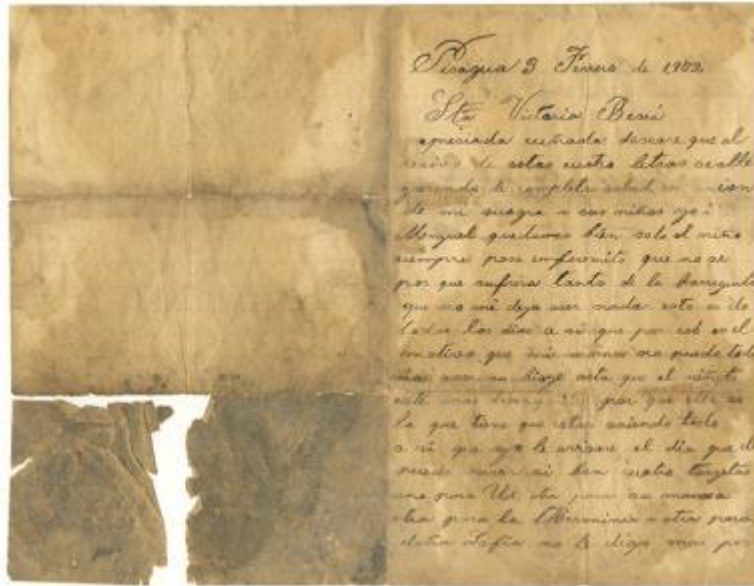 Pisagua 3 Ferrero de 1902
Sta Victoria Bessi
apreciada cuñada deseare que al
de estas cuatro letras se alle
gosando de completa salud en union
de mi suegra i sus niñas yo i
Manuel quedamos bien solo el niño
siempre pasa enfermito que no se
por que sufrira tanto de la barriguita
que no me deja aser nada esto es de
todos los dias a si que por eso es el
motivo que mi mamá no puede
asta que el niñito
este mas por que ella es
la que tiene que estar asiendo todo
a si que yo le avisare el dia que
ban cuatro targetas
una para Ud otra para su mamá
otra para la Herminia i otra para
doña no le digo mas por